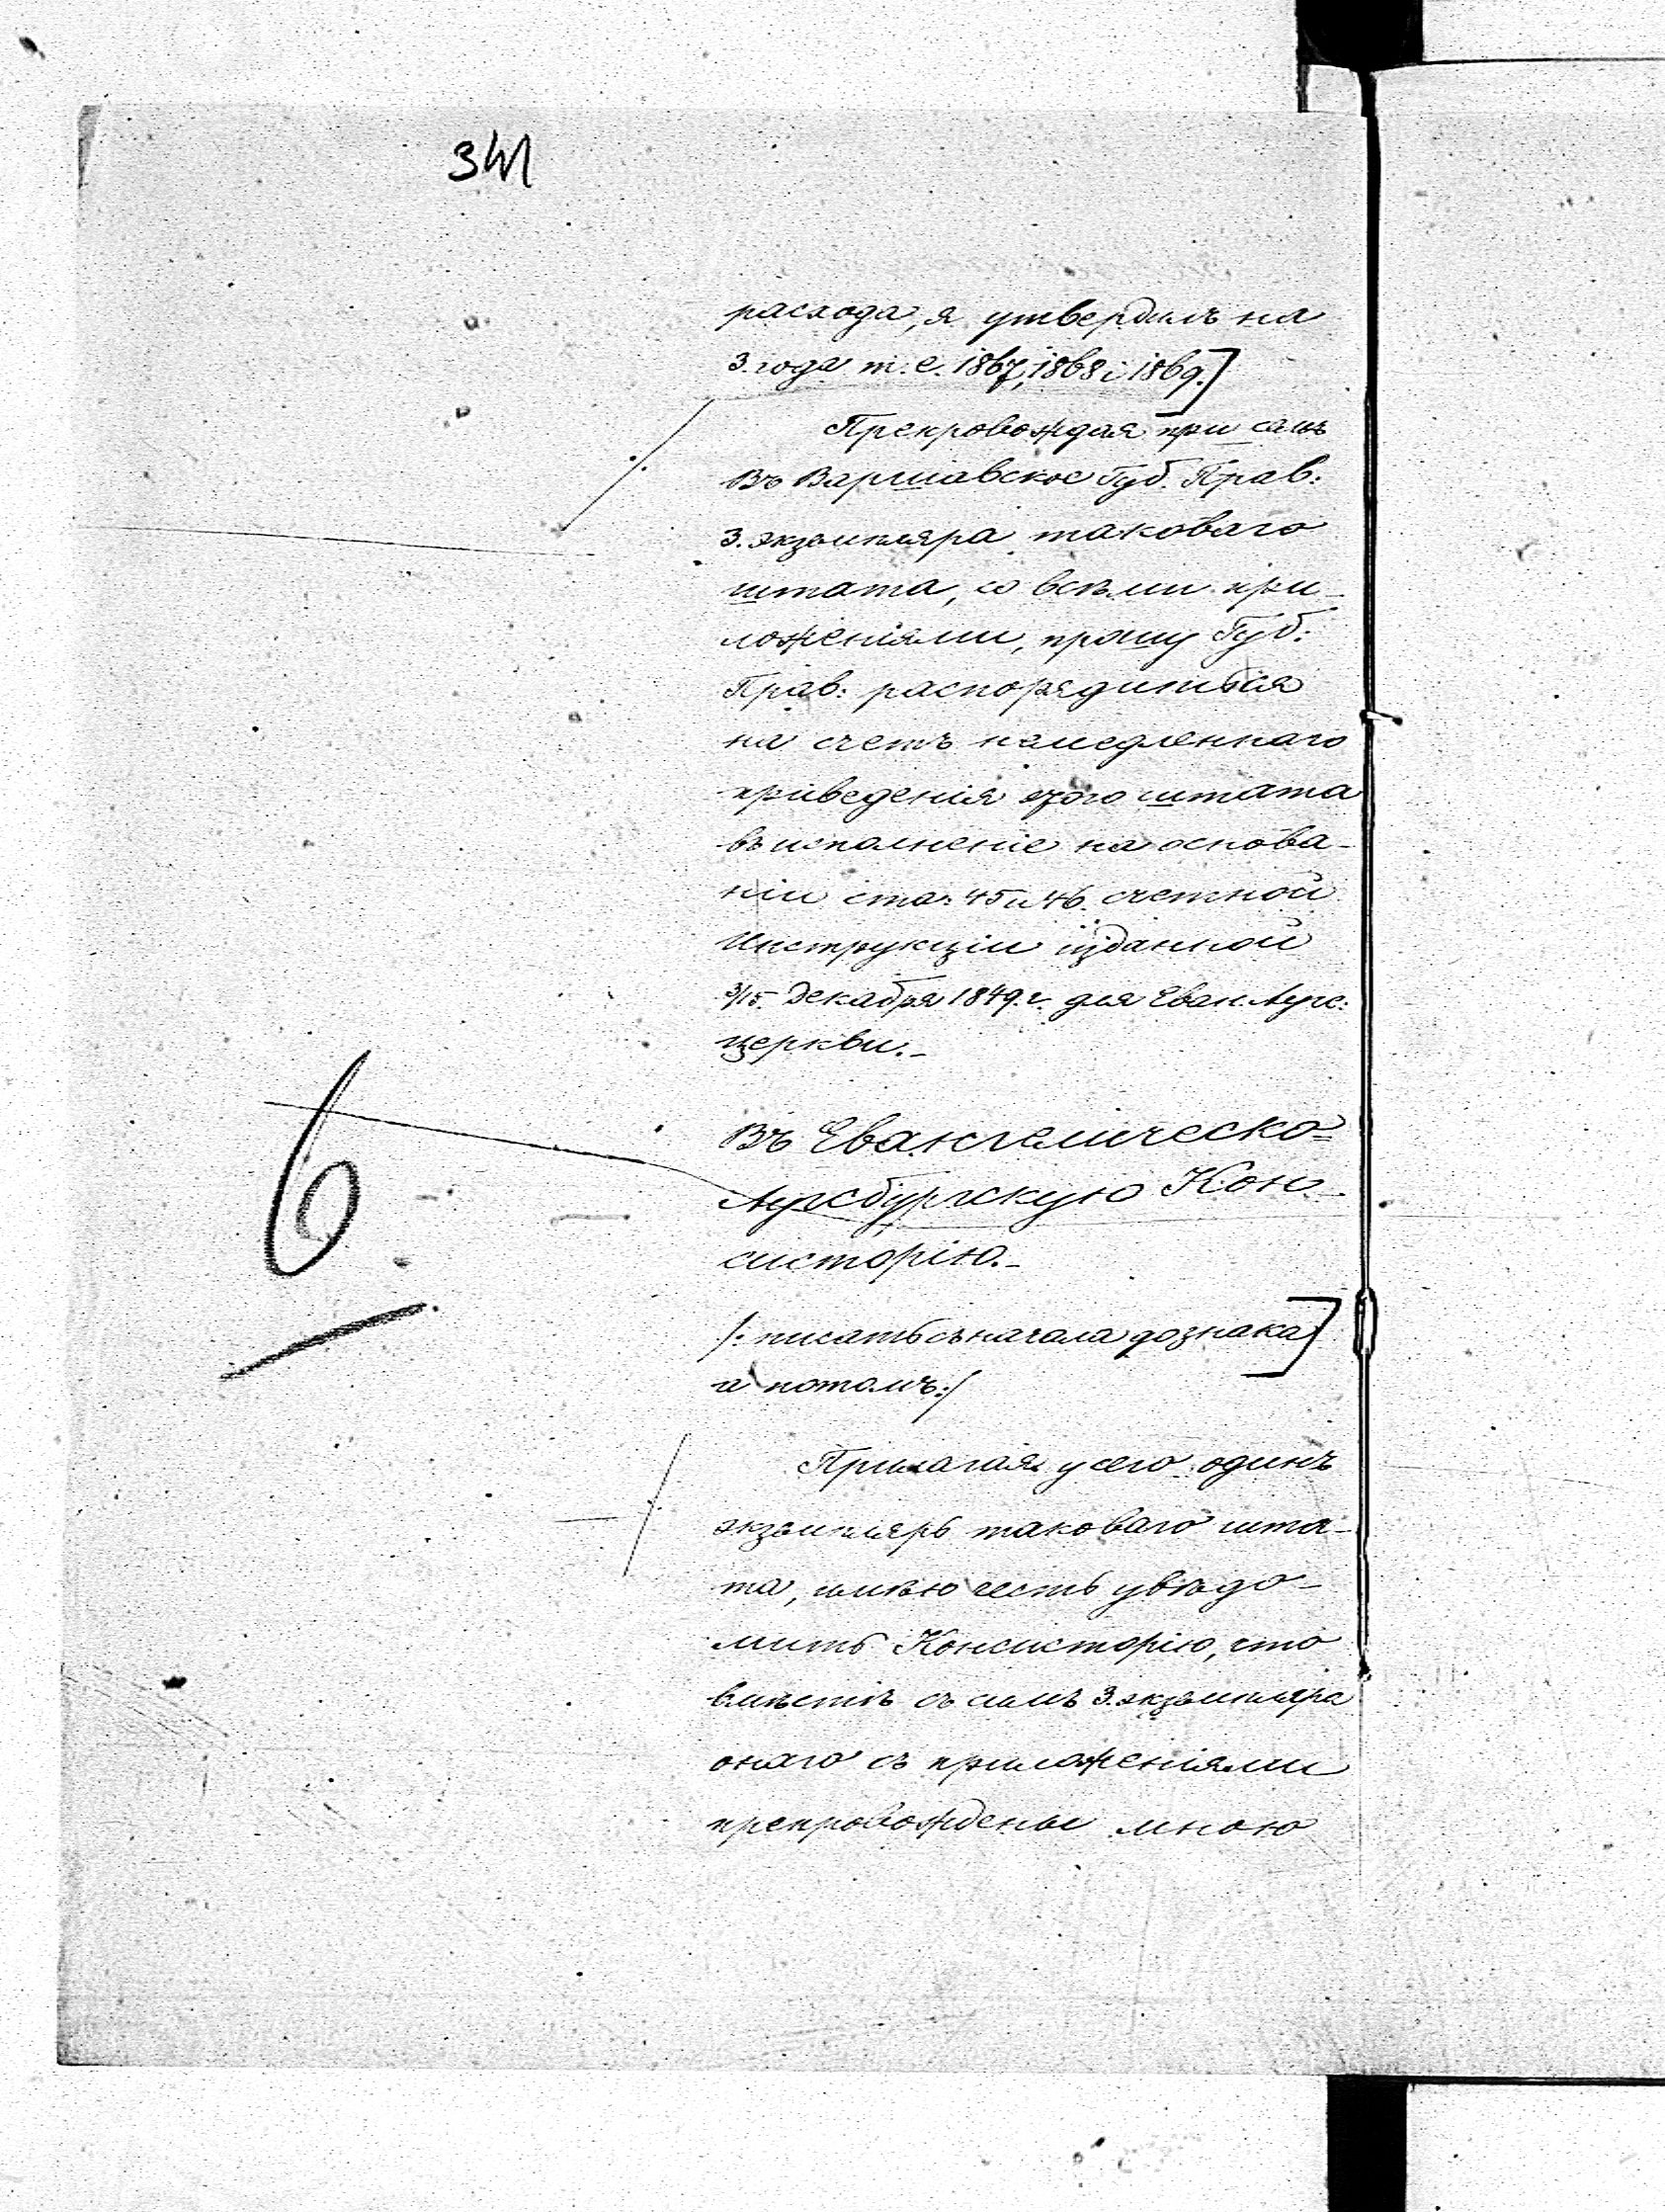 341
расхода, я утвердилъ на
3. года т. е. 1867, 1868 i 1869.]
Препровождая при семъ
въ Варшавское Губ. Прав:
3. экземпляра таковаго
штата, со всѣми при-
ложеніями, прошу Губ:
Прав: распорядиться
на счетъ немедленнаго
приведенія этого штата
въ исполненіе на основа-
ніи ста: 45 и 46. счетной
Инструкціи изданной
3/15 Декабря 1849. г. для Еван. Аугс:
церкви.-
6
Въ Евангелическо=
Аугсбургскую Кон-
систорію.-
/: писать съ начала до знака]
и потомъ:/
Прилагая у сего одинъ
экземпляръ таковаго шта-
та, имѣю честь увѣдо-
мить Консисторію, что
вмѣстѣ съ симъ 3. экземпляра
онаго съ приложеніями
препровождены мною